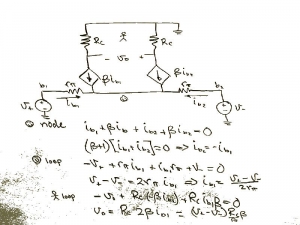 Rc Rc
- v₀ -
βib₁ βib₂
b₁ rπ rπ b₂
ib₁ ib₂
V₊ V₋
① node ib₁ + βib₁ + ib₂ + βib₂ = 0
(β+1)[ib₁+ib₂] = 0 ⇒ ib₂ = -ib₁
② loop -V₊ + rπ ib₁ + ib₁rπ + V₋ = 0
V₊ - V₋ = 2rπ ib₁ ⇒ ib₁ = V₊ - V₋ / 2rπ
loop - V₀ + Rc(βib₁) + Rc ib₁β = 0
V₀ = Rc 2β ib₁ = (V₊ - V₋) Rcβ / rπ